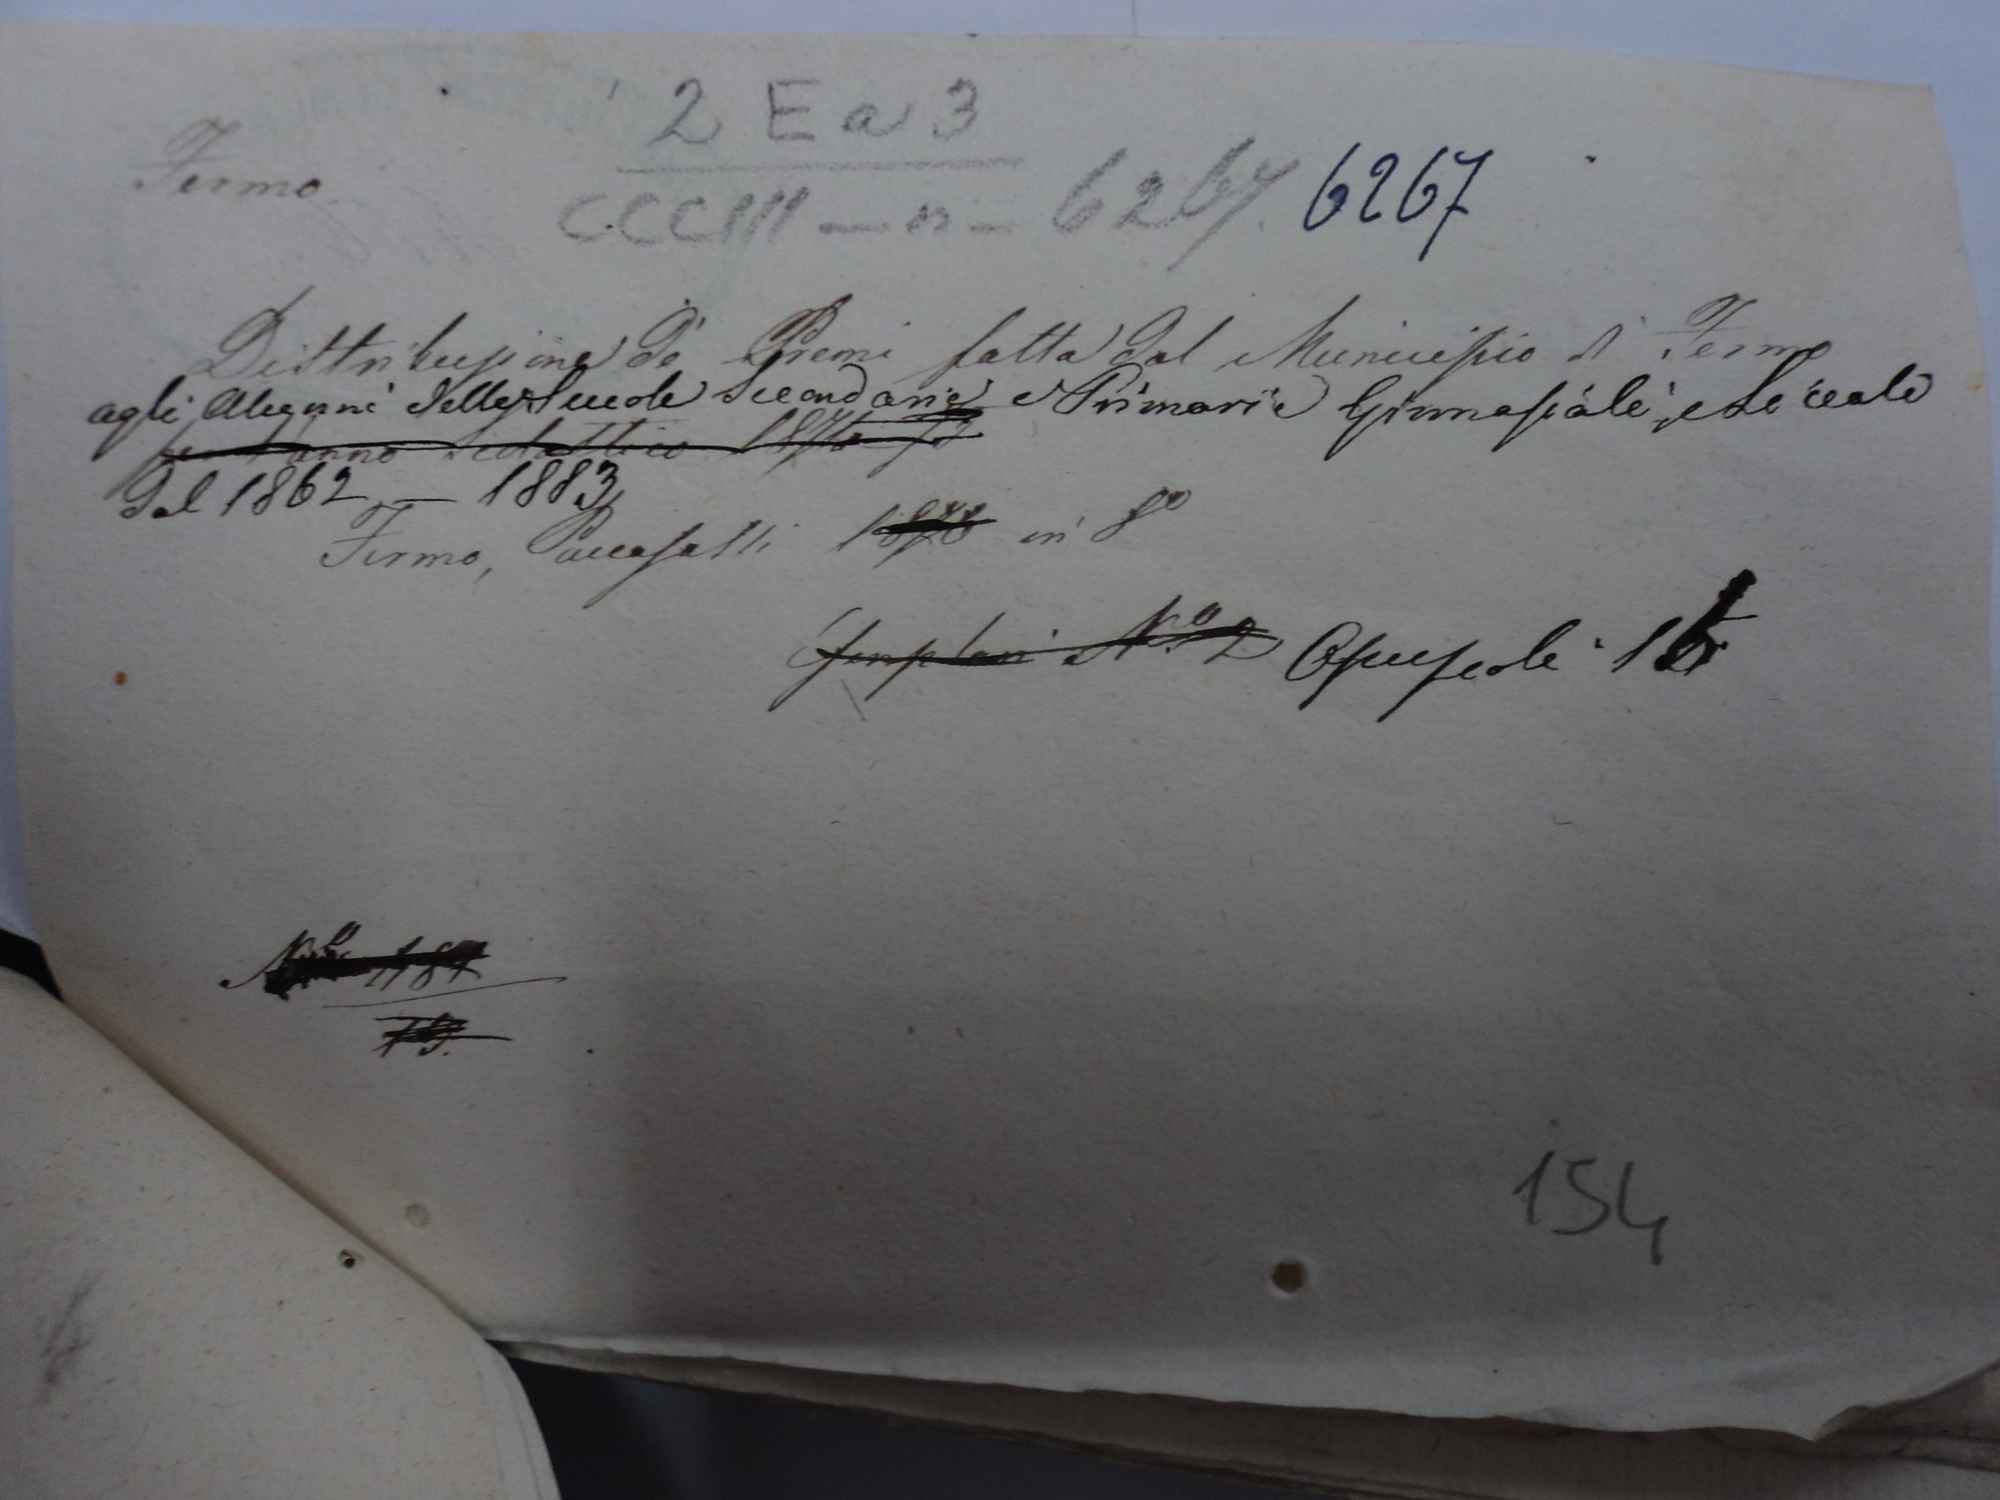 2 E a 3
Fermo.
CCCIII - n - 6267. 6267
Distribuzione de' Premi fatta dal Municipio di Fermo
agli Alunni delle Scuole Secondarie e Primarie Ginnasiali, e Liceale
per l'anno Scolastico
dal 1862 — 1883
Fermo, Paccasassi 1878 in 8º
Esemplari Nº 2 Opuscoli 1
154